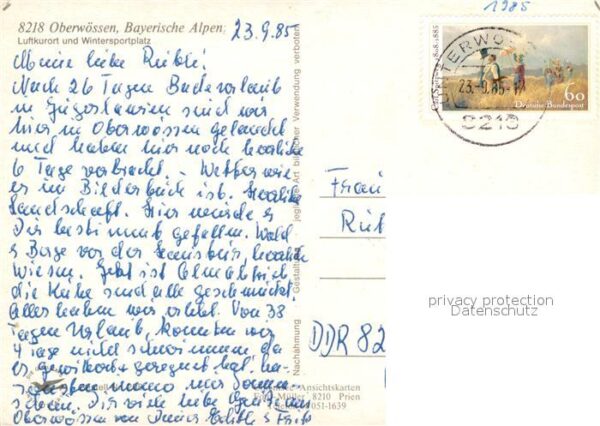 1985
8218 Oberwössen, Bayerische Alpen
Luftkurort und Wintersportplatz
23.9.85
Meine liebe
Nach 26 Tagen Badeurlaub
in Jugoslawien sind wir
hier in Oberwössen gelandet
und haben hier noch herrliche
6 Tage verbracht. – Wetter wie
es im Bilderbuch ist. Herrliche
Landschaft. Hier würde es
Dir bestimmt gefallen. Wald
& Berge vor der Haustür, herrliche
Wiesen. Jetzt ist Almabtrieb,
die Kühe sind alle geschmückt.
Alles haben wir erlebt. Von 38
Tagen Urlaub, konnten wir
4 Tage nicht schwimmen, da
es geregnet
nur Sonnen-
schein. Dir viele liebe Grüße aus
Oberwössen von Edith & Fritz
jegliche Art bildlicher Verwendung verboten
Nachahmung
Ansichtskarten
Müller 8210 Prien
051-1639
TERWÖ
23.-9.85
8218
1885
60
Deutsche Bundespost
Frau
DDR 82
privacy protection
Datenschutz